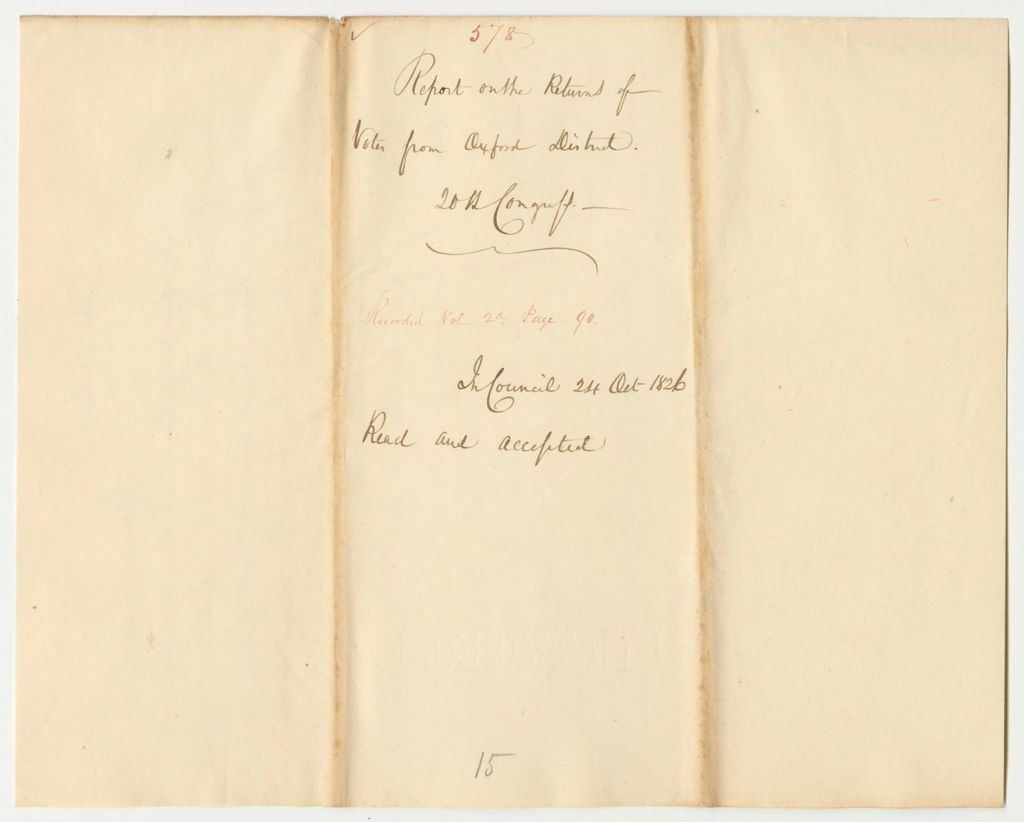 578
Report on the Returns of
Votes from Oxford District.
20th Congress. —
Recorded Vol 2d Page 90.
In Council 24 Oct 1826
Read and accepted
15